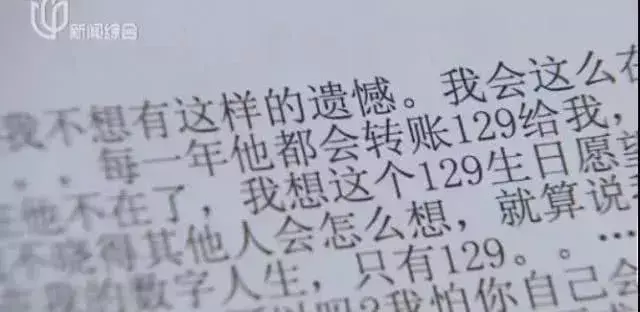 新闻综合
我不想有这样的遗憾。我会这么在
。。每一年他都会转账129给我,
他不在了,我想这个129生日愿望
不晓得其他人会怎么想,就算说
我的数字人生,只有129。。…
吗?我怕你自己会